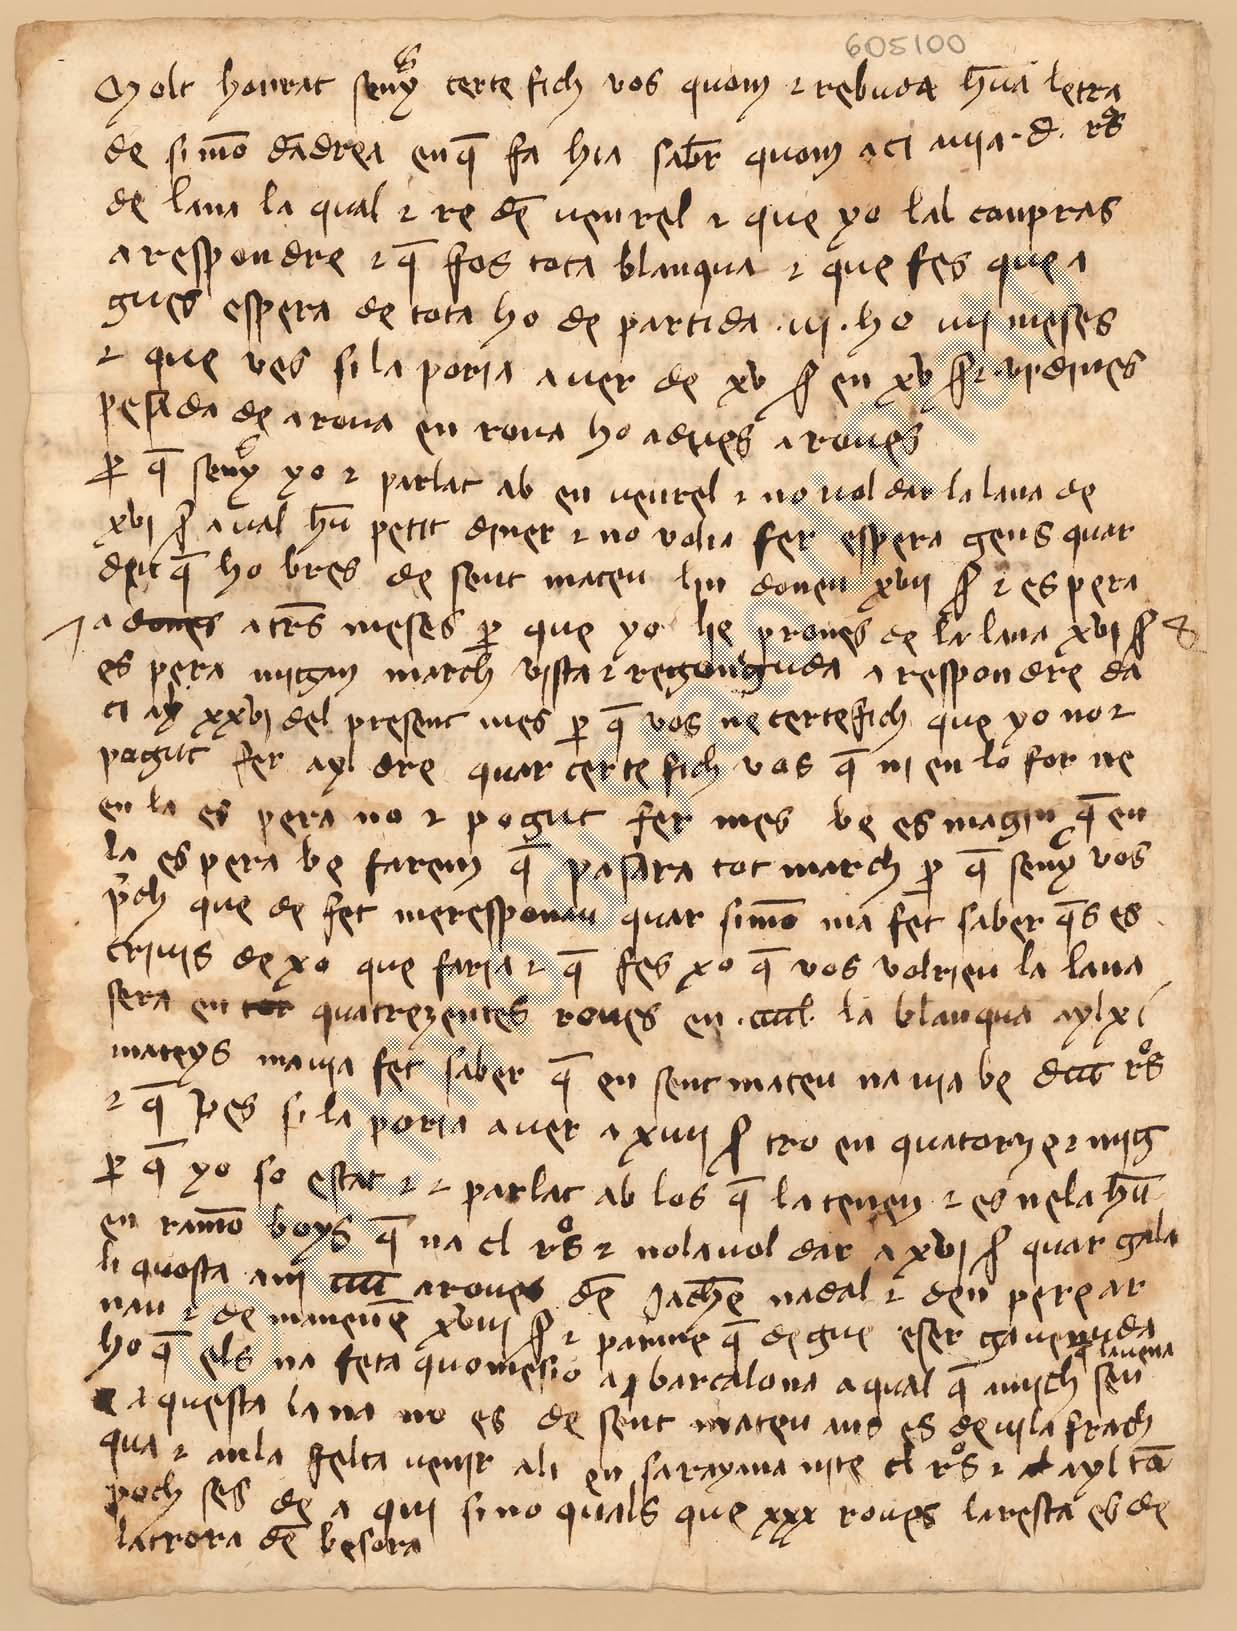 605100
Molt honrat seny certefich vos quom e rebuda hua letra
de simo dandrea en q fa hia sabr quom aci auia d. rs
de lana la qual e re de veurel e que yo lal conpras
a respondre e q fos tota blanqua e que fes que a
gues espera de tota ho de partida .iij. ho iiij meses
e que ves si la poria auer de xv ss en xv ss e vi dines
pesada de a roua en roua ho a dues a roues
per q seny yo e parlat ab en veurel e no uol dar la lana de
xvj ss aual hu petit diner e no volia fer espera gens quar
diu q hobres de sent mateu lin donen xvij ss e espera
a dones a trs meses per que yo he proues de la lana xvj ss &
es pera mitgan march vista e regonguda a respondre da
ci ay xxvj del present mes per q vos ne certefich que yo no e
pogut fer ayl dre quar certefich vos q ni en lo for ne
en la es pera no e pogut fer mes be es magin q en
la es pera be farem q pasara tot march per q seny vos
prech que de fet me responau quar simo ma fet saber q s es
criuis de xo que faria e q fes xo q vos volrieu la lana
sera en tot quatrezentes roues en la blanqua ayl xi
mateys mauia fet saber q en sent mateu na uia be rs
e q ves si la poria auer a xiiij ss tro en quatorze e mig
per q yo so estat e e parlat ab los q la tenen e es ne la hu
en ramo boys q na cl rs e no la uol dar a xvj ss quar gala
li quosta aui a roues de Jacme nadal e den pere ar
nau e de maneue xviij ss e parme q degue eser ga venuda
ho q els na feta quomesio a barcalona a qual q amich seu
q la vena
a questa lana no es de sent mateu ans es de vila frach
qua e an la felta venir ali en sarayana cl rs e ayl to
poch ses de a qui sino quals que xxx roues la resta es de
la trora de besora